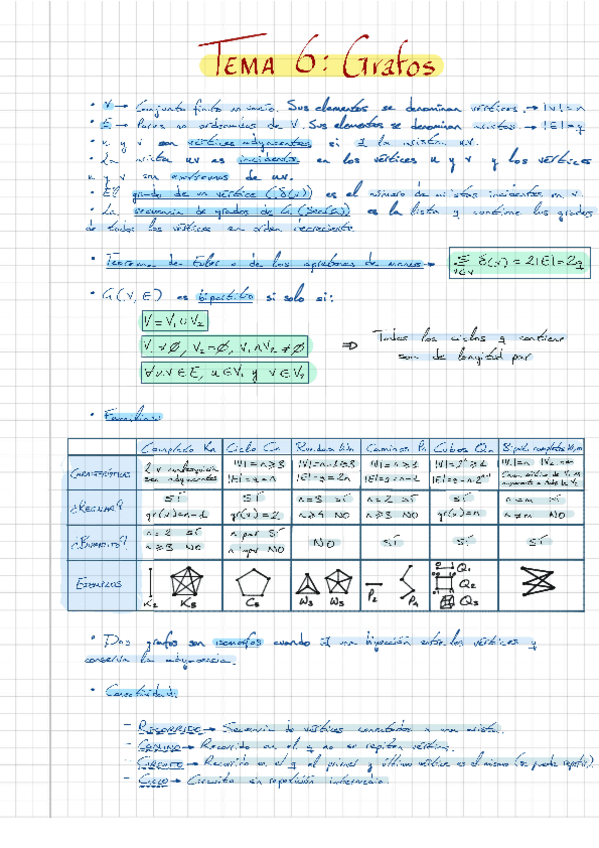 TEMA 6: Grafos
• V → Conjunto finito no vacío. Sus elementos se denominan vértices. → |V| = n
• E → Pares no ordenados de V. Sus elementos se denominan aristas. → |E| = q
• u y v son vértices adyacentes si ∃ la arista uv.
• La arista uv es incidente en los vértices u y v y los vértices
u y v son extremos de uv.
• El grado de un vértice (δ(v)) es el número de aristas incidentes en v.
• La secuencia de grados de G es la lista q contiene los grados
de todos los vértices en orden decreciente.
• Teorema de Euler o de los apretones de manos → Σ δ(v) = 2|E| = 2q
v∈V
• G(V, E) es bipartito si solo si:
V = V₁ ∪ V₂
V₁ ≠ Ø, V₂ = Ø, V₁ ∩ V₂ ≠ Ø ⇒ Todos los ciclos q contiene
son de longitud par
∀uv ∈ E, u ∈ V₁ y v ∈ V₂
• Familias:
Completo Kn Ciclo Cn Ruedas Wn Caminos Pn Cubos Qn Bipart. completos
CARACTERÍSTICAS
son adyacentes
|V| = n ≥ 3
|E| = q = n
|E| = q = 2n
|V| = n ≥ 1
|E| = q = n-1
¿REGULAR? SÍ SÍ n = 3 SÍ n = 2 SÍ SÍ n = m SÍ
gr(v) = n-1 gr(v) = 2 n ≥ 4 NO n ≥ 3 NO gr(v) = n n ≠ m NO
¿BIPARTITO? n = 2 SÍ n par SÍ NO SÍ SÍ SÍ
n ≥ 3 NO n impar NO
EJEMPLOS K₂ K₅ C₅ W₃ W₅ P₂ P₄ Q₁ Q₂ Q₃
• Dos grafos son isomorfos cuando ∃ una biyección entre los vértices y
conserva la adyacencia.
• Conectividad:
– RECORRIDO → Secuencia de vértices conectados a una arista.
– CAMINO → Recorrido en el q no se repiten vértices.
– CIRCUITO → Recorrido en el q el primer y último vértice es el mismo (se puede repetir).
– CICLO → Circuito sin repetición intermedia.